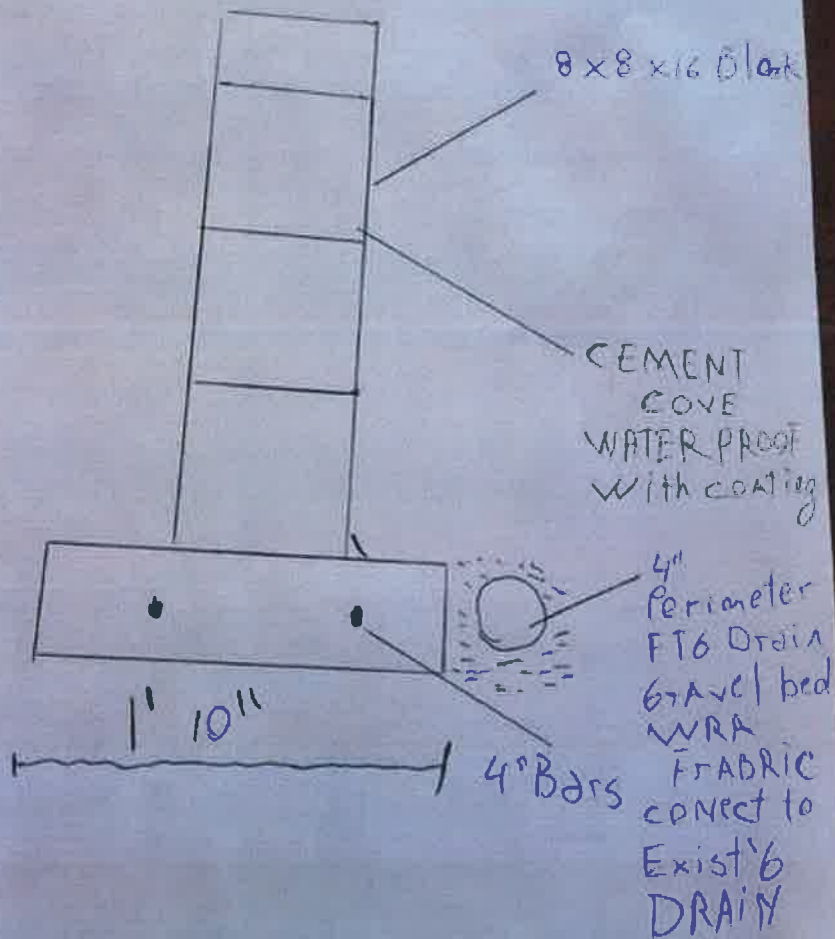 8 x 8 x 16 Block
CEMENT
COVE
WATER PROOF
With coating
4"
Perimeter
FTG Drain
Gravel bed
WRA
FrABRIC
coNect to
Exist'G
DRAiN
1' 10"
4" Bars